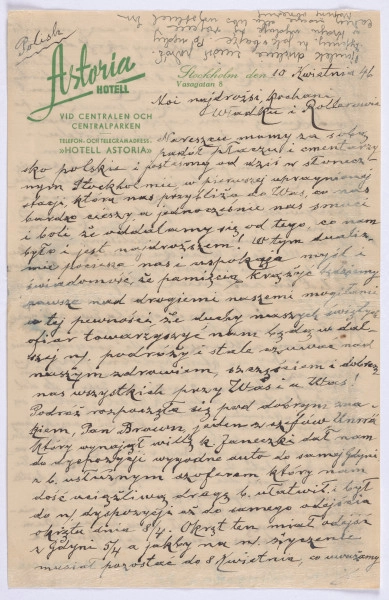 Polish
Astoria
HOTELL
VID CENTRALEN OCH
CENTRALPARKEN
TELEFON- OCH TELEGRAMADRESS:
»HOTELL ASTORIA»
Stockholm den 10 Kwietnia 46
Vasagatan 8
Moi najdrożsi, kochani,
Władku i
Nareszcie mamy za sobą
padoł płaczu i cmentarzy
sko polskie i jesteśmy od dziś w słonecz
nym Stockholmie, w pierwszej upragnionej
stacji, która nas przybliża do Was, co nas
bardzo cieszy a jednocześnie nas smuci
i boli że oddalamy się od tego, co nam
było i jest najdroższem! W tym dualiz-
mie pociesza nas i uspokaja myśl i
świadomość że pamięcią krążyć będziemy
zawsze nad drogiemi naszemi mogiłami
a tej pewności że duchy naszych świętych
ofiar towarzyszyć nam będą w dal
szej n. podróży i stale czuwać nad
naszym zdrowiem, szczęściem i dobrem
nas wszystkich przy Was i u Was!
Podróż rozpoczęła się pod dobrym zna
kiem, Pan Brown, jeden z szefów Unrra
który wynajął willę k. Janeczki dał nam
do dyspozycji wygodne auto do samej Gdyni
z b. usłużnym szoferem który nam
dość uciążliwą drogę b. ułatwił i był
do n. dyspozycji aż do samego odejścia
okrętu dnia 8/4. Okręt ten miał odejść
z Gdyni 5/4 a jakby na n. życzenie
musiał pozostać do 8 Kwietnia, co uważamy